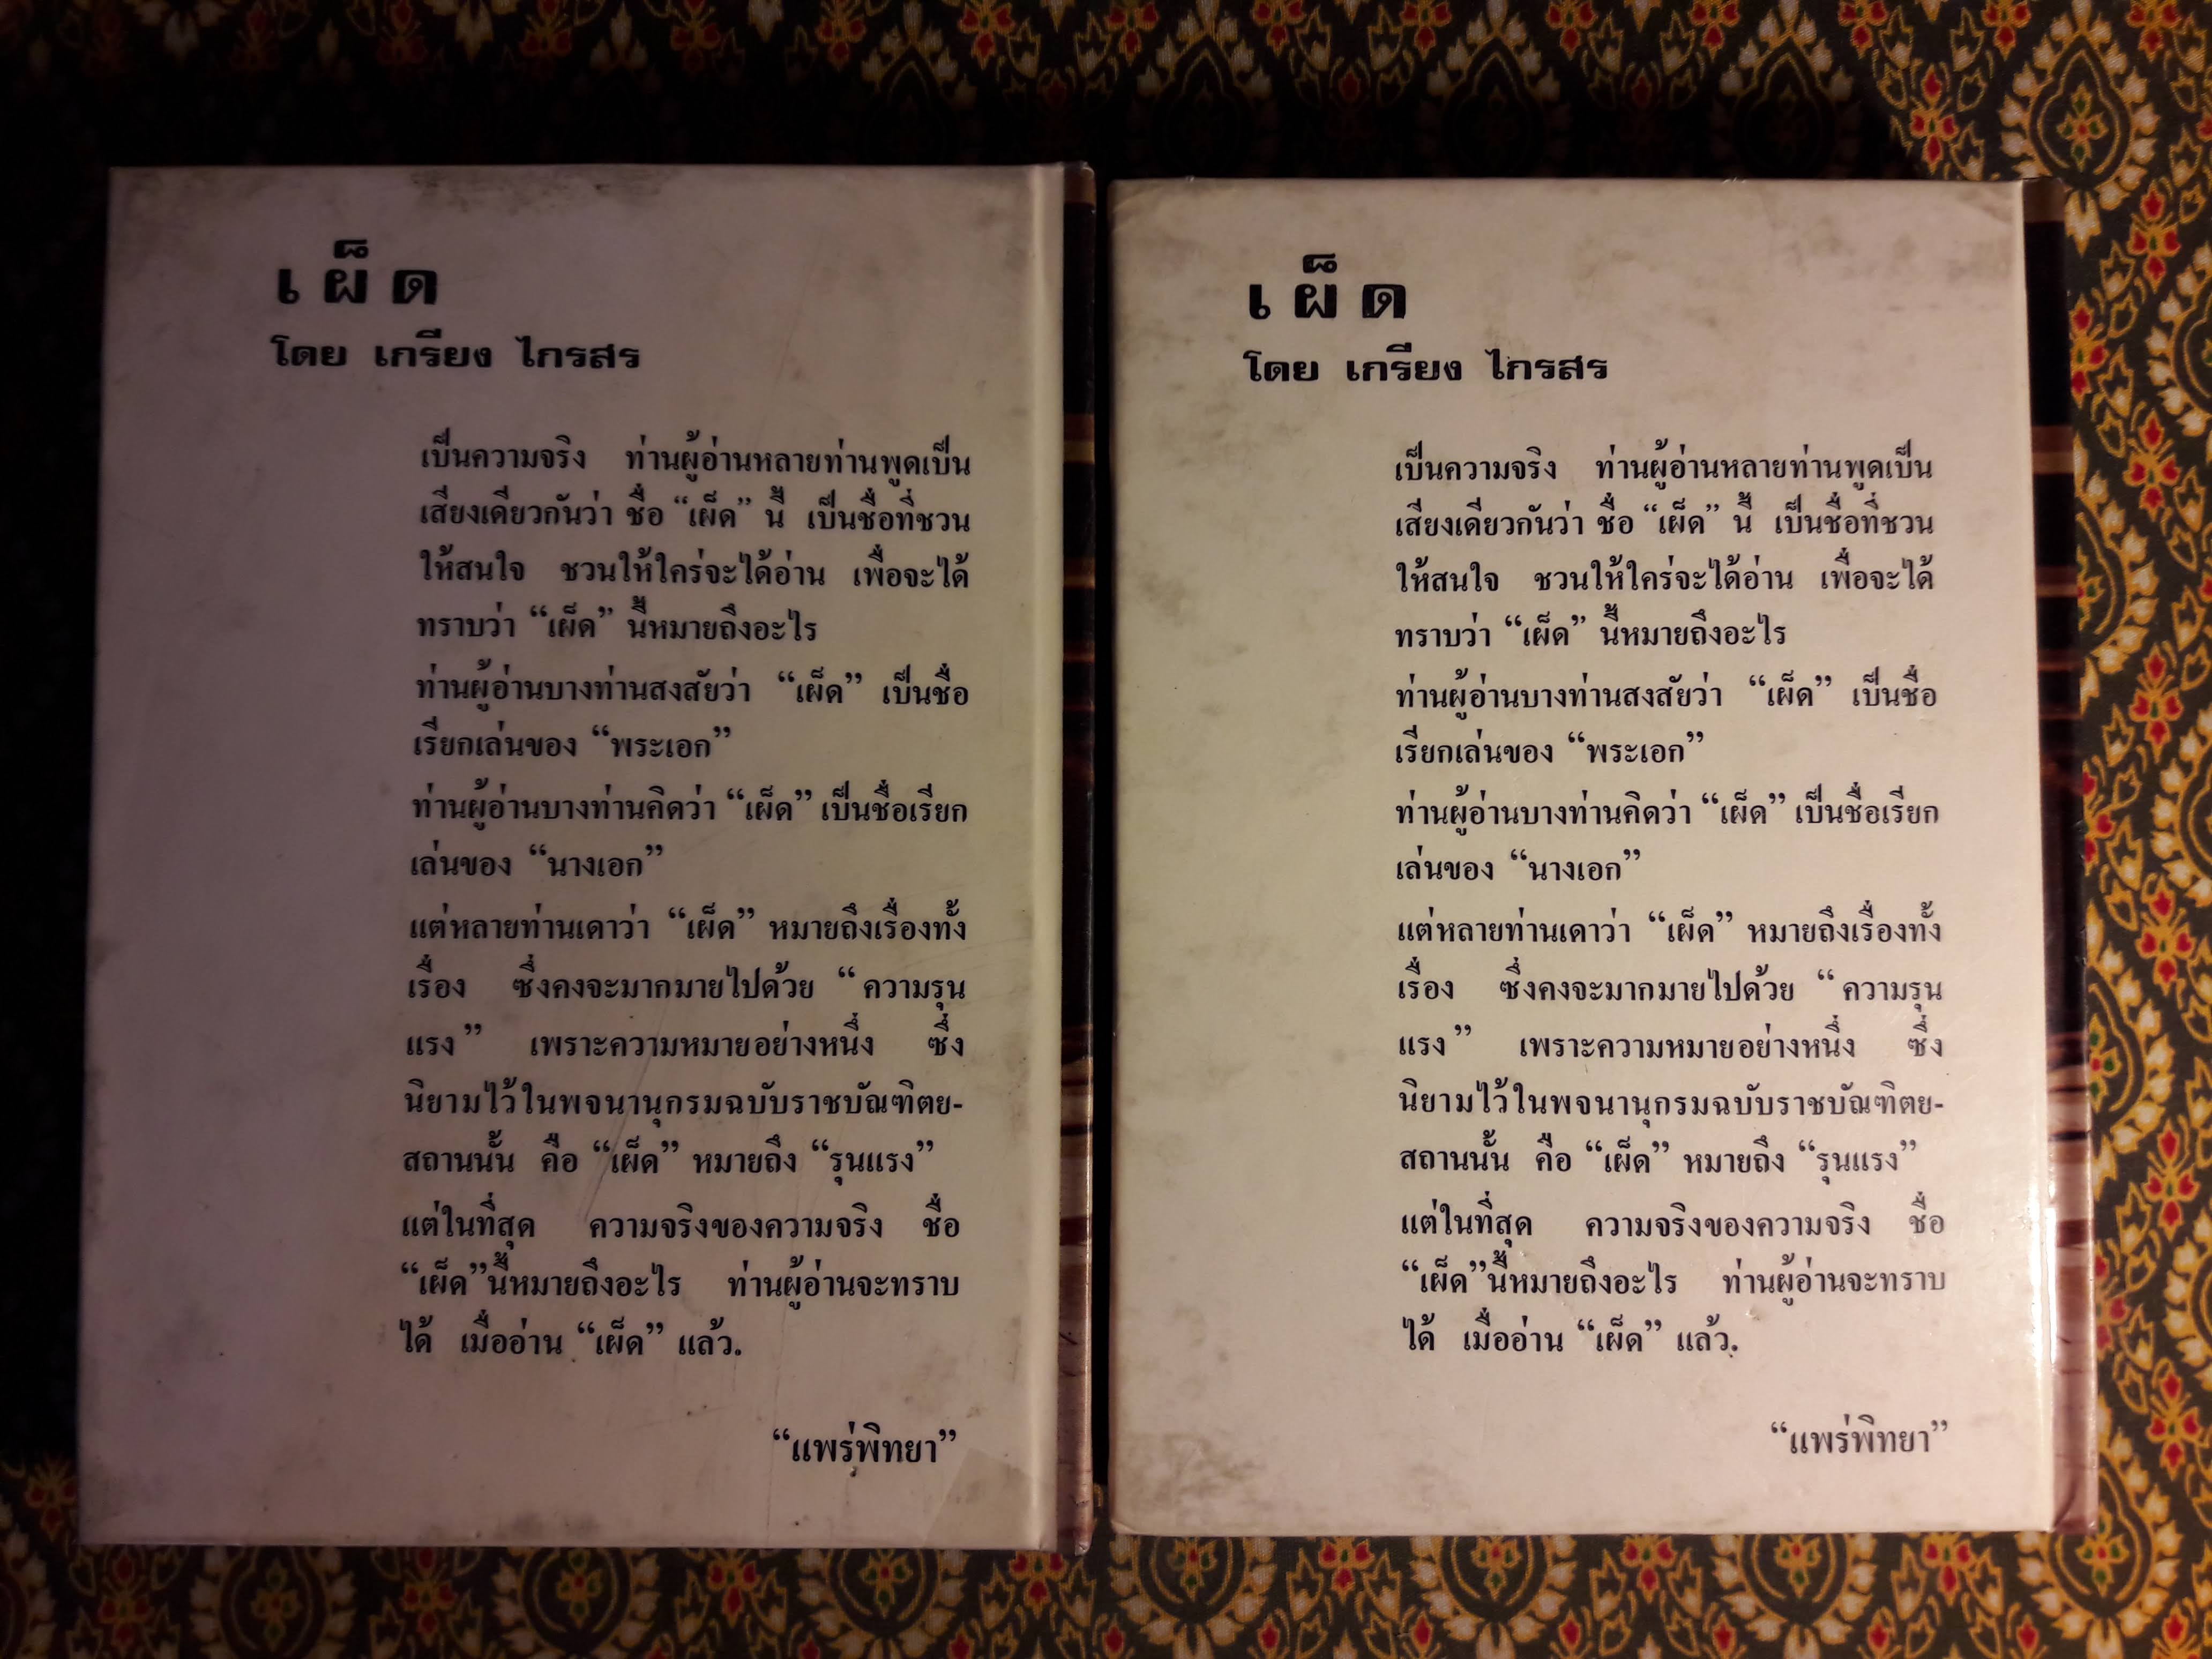 เผ็ด
โดย เกรียง ไกรสร
เป็นความจริง ท่านผู้อ่านหลายท่านพูดเป็น
เสียงเดียวกันว่า ชื่อ “เผ็ด” นี้ เป็นชื่อที่ชวน
ให้สนใจ ชวนให้ใคร่จะได้อ่าน เพื่อจะได้
ทราบว่า “เผ็ด” นี้หมายถึงอะไร
ท่านผู้อ่านบางท่านสงสัยว่า “เผ็ด” เป็นชื่อ
เรียกเล่นของ “พระเอก”
ท่านผู้อ่านบางท่านคิดว่า “เผ็ด” เป็นชื่อเรียก
เล่นของ “นางเอก”
แต่หลายท่านเดาว่า “เผ็ด” หมายถึงเรื่องทั้ง
เรื่อง ซึ่งคงจะมากมายไปด้วย “ความรุน
แรง” เพราะความหมายอย่างหนึ่ง ซึ่ง
นิยามไว้ในพจนานุกรมฉบับราชบัณฑิตย-
สถานนั้น คือ “เผ็ด” หมายถึง “รุนแรง”
แต่ในที่สุด ความจริงของความจริง ชื่อ
“เผ็ด”นี้หมายถึงอะไร ท่านผู้อ่านจะทราบ
ได้ เมื่ออ่าน “เผ็ด” แล้ว.
“แพร่พิทยา”
เผ็ด
โดย เกรียง ไกรสร
เป็นความจริง ท่านผู้อ่านหลายท่านพูดเป็น
เสียงเดียวกันว่า ชื่อ “เผ็ด” นี้ เป็นชื่อที่ชวน
ให้สนใจ ชวนให้ใคร่จะได้อ่าน เพื่อจะได้
ทราบว่า “เผ็ด” นี้หมายถึงอะไร
ท่านผู้อ่านบางท่านสงสัยว่า “เผ็ด” เป็นชื่อ
เรียกเล่นของ “พระเอก”
ท่านผู้อ่านบางท่านคิดว่า “เผ็ด” เป็นชื่อเรียก
เล่นของ “นางเอก”
แต่หลายท่านเดาว่า “เผ็ด” หมายถึงเรื่องทั้ง
เรื่อง ซึ่งคงจะมากมายไปด้วย “ความรุน
แรง” เพราะความหมายอย่างหนึ่ง ซึ่ง
นิยามไว้ในพจนานุกรมฉบับราชบัณฑิตย-
สถานนั้น คือ “เผ็ด” หมายถึง “รุนแรง”
แต่ในที่สุด ความจริงของความจริง ชื่อ
“เผ็ด”นี้หมายถึงอะไร ท่านผู้อ่านจะทราบ
ได้ เมื่ออ่าน “เผ็ด” แล้ว.
“แพร่พิทยา”